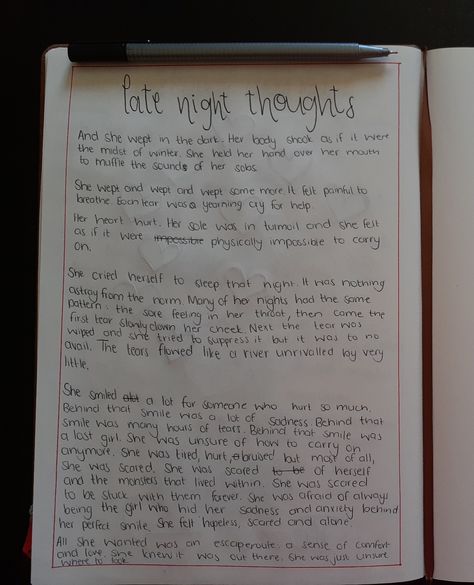 late night thoughts
And She wept in the dark. Her body shook as if it were
the midst of winter. She held her hand over her mouth
to muffle the sounds of her sobs.
She wept and wept and wept some more. It felt painful to
breathe. Each tear was a yearning cry for help.
Her heart hurt. Her sole was in turmoil and she felt
as if it were impossible physically impossible to carry
on.
She cried herself to sleep that night. It was nothing
astray from the norm. Many of her nights had the same
pattern: the sore feeling in her throat, then came the
first tear slowly down her cheek. Next the tear was
wiped and she tried to suppress it but it was to no
avail. The tears flowed like a river unrivalled by very
little.
She smiled alot a lot for someone who hurt so much.
Behind that smile was a lot of sadness. Behind that
smile was many hours of tears. Behind that smile was
a lost girl. She was unsure of how to carry on
anymore. She was tired, hurt, bruised but most of all,
she was scared. She was scared to be of herself
and the monsters that lived within. She was scared
to be stuck with them forever. She was afraid of always
being the girl who hid her sadness and anxiety behind
her perfect smile. She felt hopeless, scared and alone.
All she wanted was an escaperoute. a sense of comfort
and love. She knew it was out there. She was just unsure
where to look.